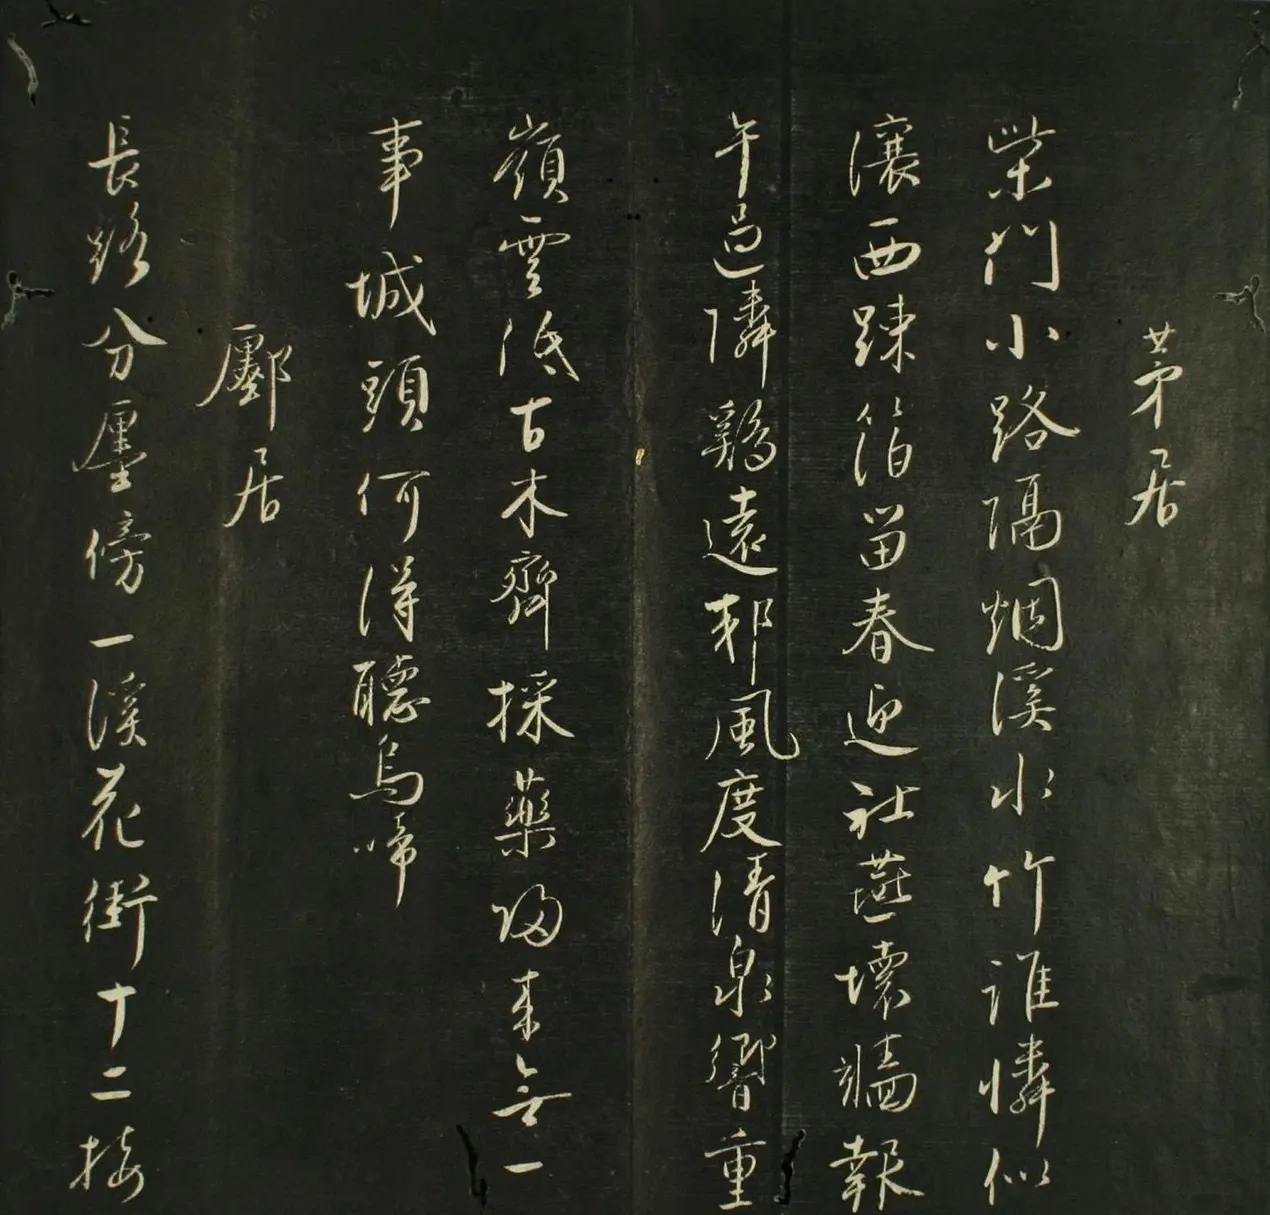 茅居
柴門小路隔烟溪水竹誰憐似
瀼西踈箔留春迎社燕壞牆報
午過隣鷄遠邨風度清泉響重
嶺雲低古木齊採藥歸來無一
事城頭何得聽烏啼
鄽居
長路分廛傍一溪花街十二接